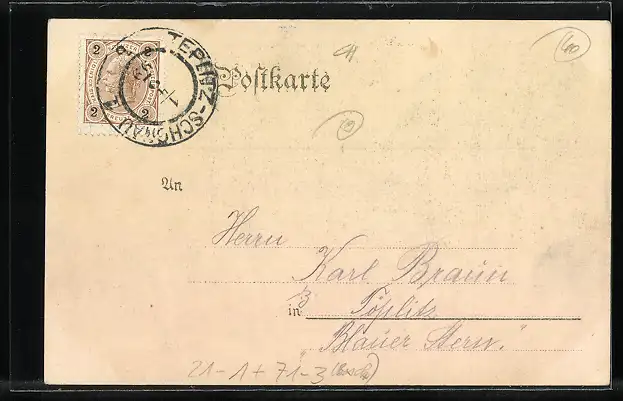 2 2
2 2
TEPLITZ-SCHÖNAU 1
Postkarte
40
19
An
Herrn
Karl Braun
3
in Töplitz
"Blauer Stern."
21-1+71-3